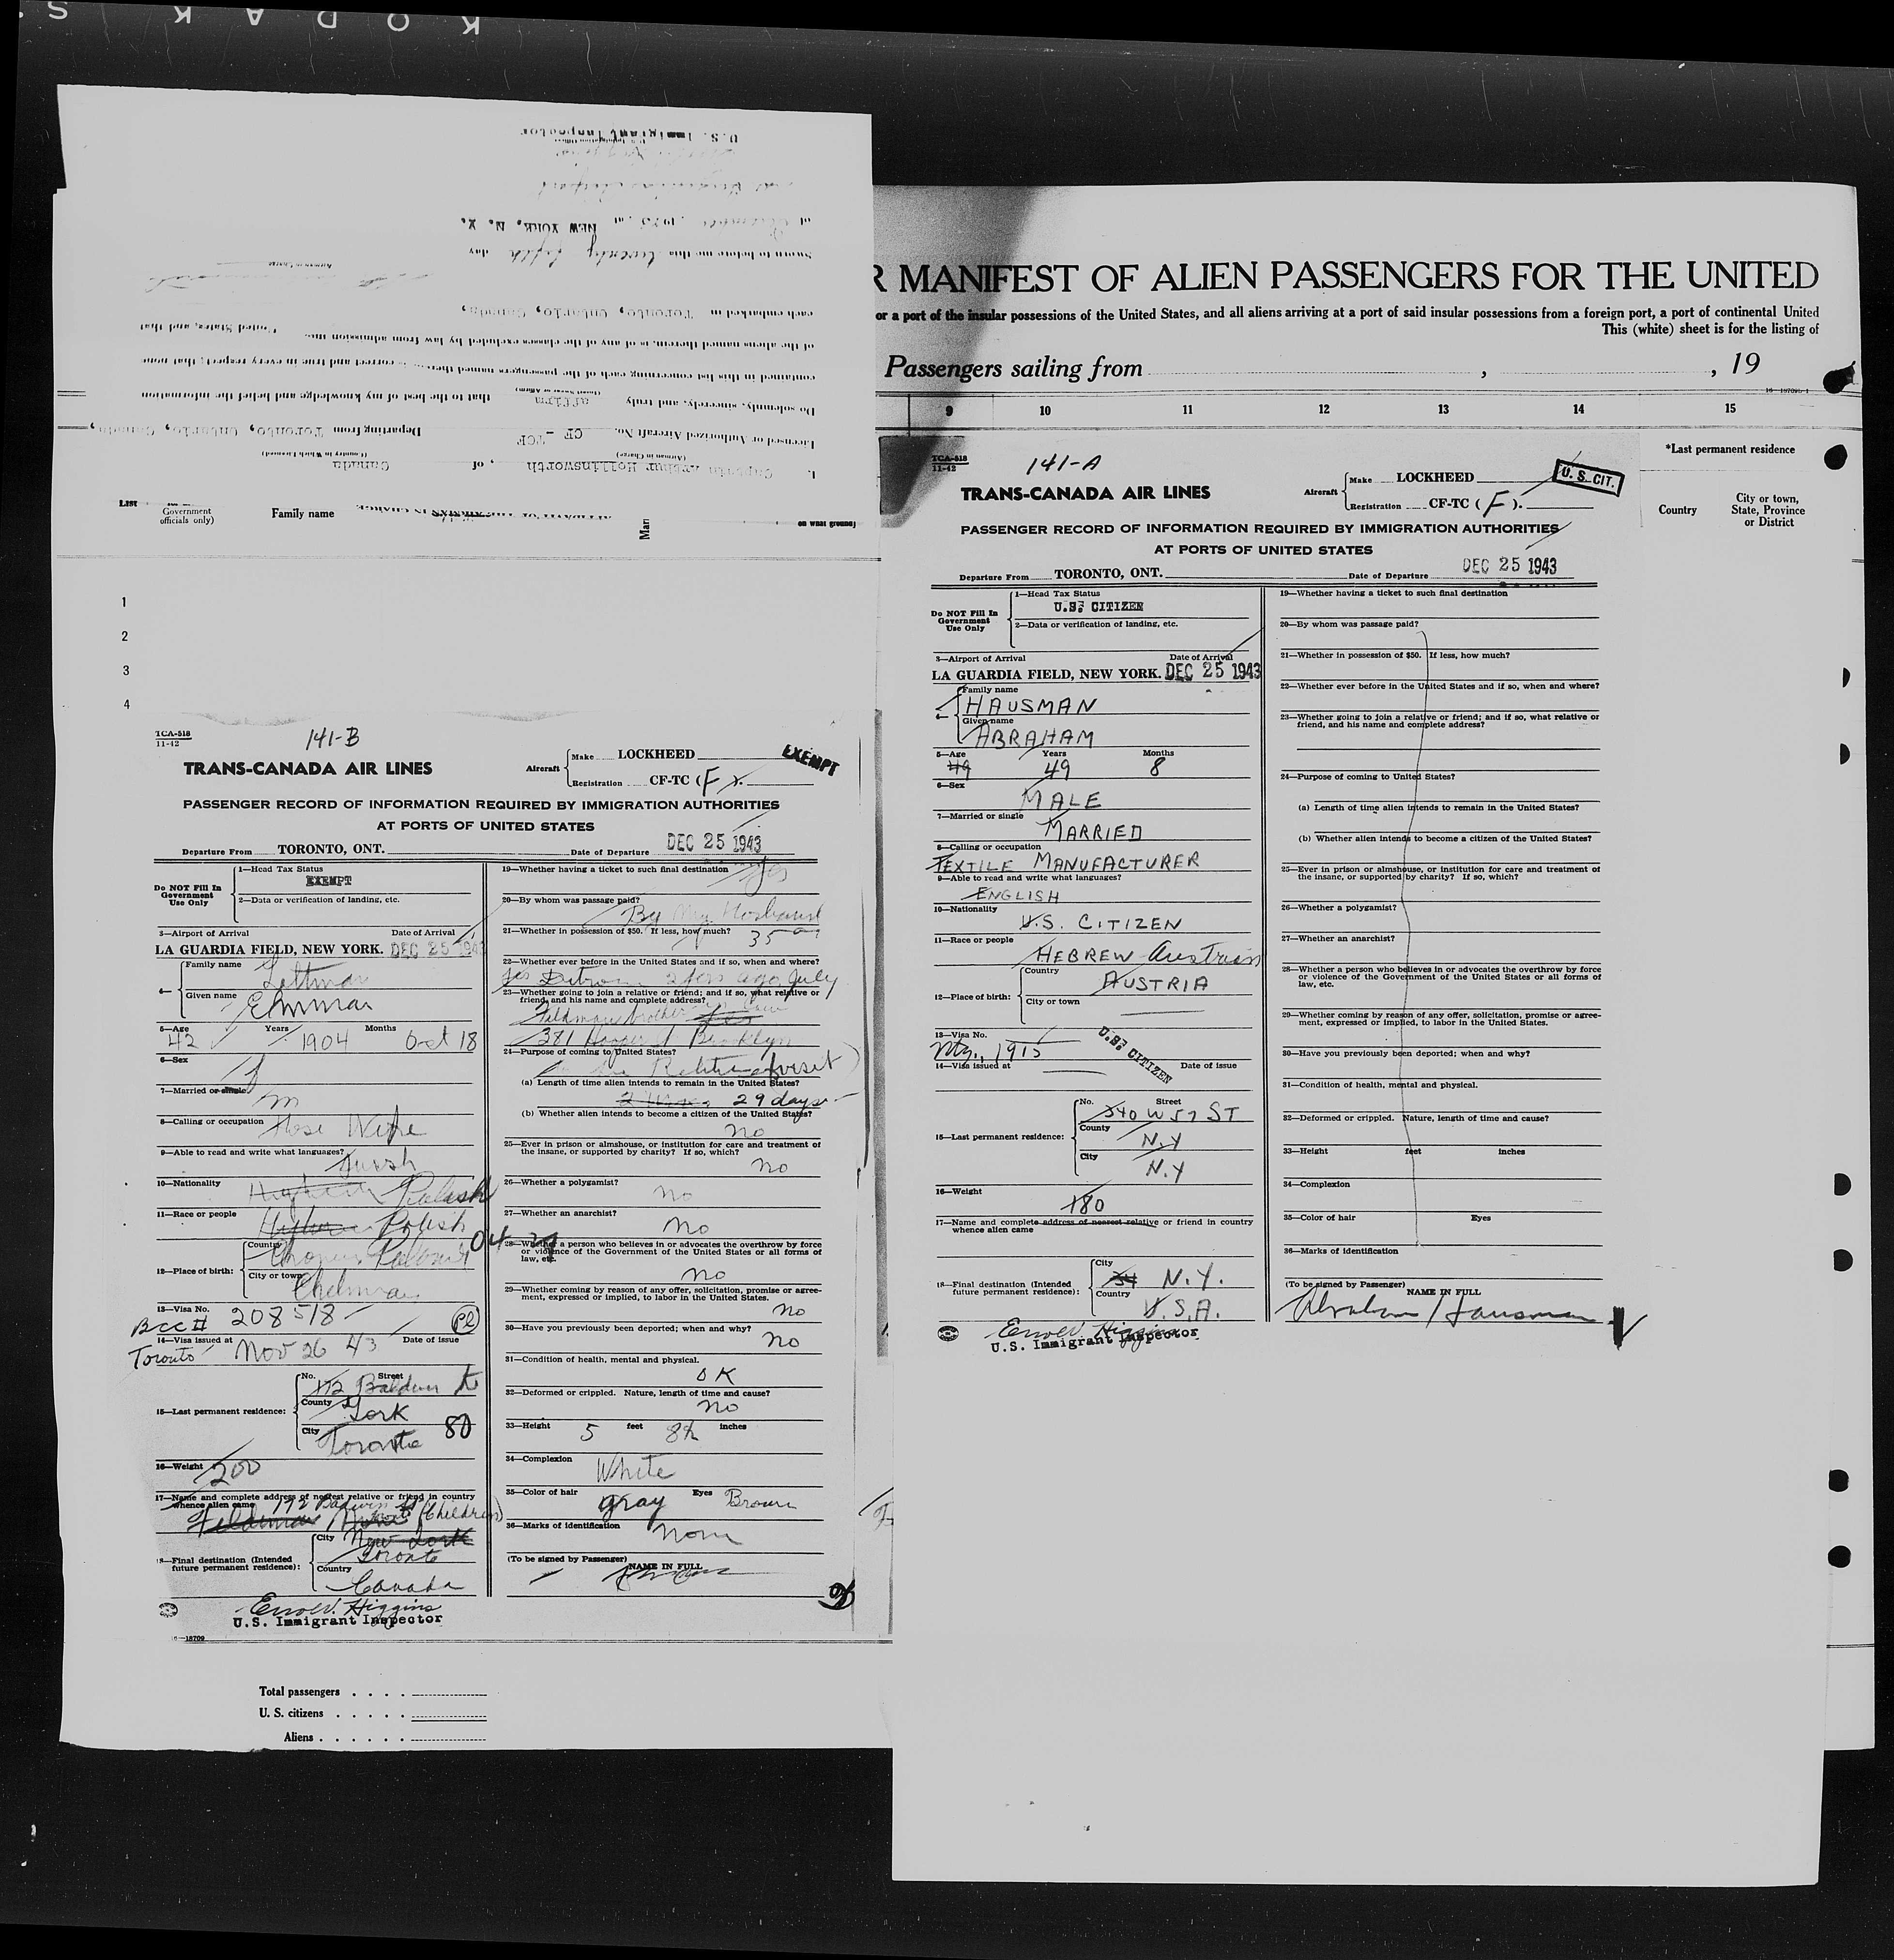 KODAK S
U.S. Immigrant Inspector
of December, 1943, at NEW YORK, N. Y.
Sworn to before me this twenty fifth day
Airman in Charge
each embarked in Toronto, Ontario, Canada,
of the aliens named therein, is of any of the classes excluded by law from admission into United States, and that
contained in this list concerning each of the passengers named correct and true in every respect; that none
Do solemnly, sincerely, and truly affirm that to the best of my knowledge and belief the information
Licensed or Authorized Aircraft No. CF - TCF Departing from Toronto, Ontario, Canada,
(Airman in Charge) (Country in Which Licensed)
I, Captain Arthur Hollinsworth, of Canada
AFFIDAVIT OF THE AIRMAN IN CHARGE
List
Government officials only)
Family name
on what ground)
1
2
3
4
TCA-518
11-42
141-B
TRANS-CANADA AIR LINES
Aircraft
Make LOCKHEED
Registration CF-TC (F).
EXEMPT
PASSENGER RECORD OF INFORMATION REQUIRED BY IMMIGRATION AUTHORITIES
AT PORTS OF UNITED STATES
Departure From TORONTO, ONT. Date of Departure DEC 25 1943
Do NOT Fill In
Government
Use Only
1—Head Tax Status
EXEMPT
2—Data or verification of landing, etc.
3—Airport of Arrival Date of Arrival
LA GUARDIA FIELD, NEW YORK. DEC 25 1943
4—
Family name
Given name
5—Age Years Months
42 1904 Oct 18
6—Sex
7—Married or single
m
8—Calling or occupation Hose Wife
9—Able to read and write what languages?
10—Nationality Polish
11—Race or people Polish
12—Place of birth:
Country
04
City or town
13—Visa No. 208518
BCC#
14—Visa issued at Date of issue
Toronto Nov 26 43
15—Last permanent residence:
No. Street
172 Baldwin St
County
York
City
Toronto 80
16—Weight 200
17—Name and complete address of nearest relative or friend in country
whence alien came 172 Baldwin St (Children)
18—Final destination (Intended
future permanent residence):
City New York
Toronto
Country
Canada
Errol V. Higgins
U.S. Immigrant Inspector
16—18709
19—Whether having a ticket to such final destination yes
20—By whom was passage paid?
By My Hosband
21—Whether in possession of $50. If less, how much? 35
22—Whether ever before in the United States and if so, when and where?
yes 2 yrs ago July
23—Whether going to join a relative or friend; and if so, what relative or
friend, and his name and complete address?
Feldman brother
381 Hooper St Brooklyn
24—Purpose of coming to United States?
visit
(a) Length of time alien intends to remain in the United States?
29 days
(b) Whether alien intends to become a citizen of the United States?
no
25—Ever in prison or almshouse, or institution for care and treatment of
the insane, or supported by charity? If so, which?
no
26—Whether a polygamist?
no
27—Whether an anarchist?
no
28—Whether a person who believes in or advocates the overthrow by force
or violence of the Government of the United States or all forms of
law, etc.
no
29—Whether coming by reason of any offer, solicitation, promise or agree-
ment, expressed or implied, to labor in the United States.
no
30—Have you previously been deported; when and why?
no
31—Condition of health, mental and physical.
OK
32—Deformed or crippled. Nature, length of time and cause?
no
33—Height 5 feet 8½ inches
34—Complexion
White
35—Color of hair gray Eyes Brown
36—Marks of identification
(To be signed by Passenger)
NAME IN FULL
Total passengers
U. S. citizens
Aliens
R MANIFEST OF ALIEN PASSENGERS FOR THE UNITED
or a port of the insular possessions of the United States, and all aliens arriving at a port of said insular possessions from a foreign port, a port of continental United
This (white) sheet is for the listing of
Passengers sailing from , , 19
9 10 11 12 13 14 15
*Last permanent residence
Country
City or town,
State, Province
or District
TCA-518
11-42
141-A
TRANS-CANADA AIR LINES
Aircraft
Make LOCKHEED
Registration CF-TC (F).
U. S. CIT.
PASSENGER RECORD OF INFORMATION REQUIRED BY IMMIGRATION AUTHORITIES
AT PORTS OF UNITED STATES
Departure From TORONTO, ONT. Date of Departure DEC 25 1943
Do NOT Fill In
Government
Use Only
1—Head Tax Status
U.S. CITIZEN
2—Data or verification of landing, etc.
3—Airport of Arrival Date of Arrival
LA GUARDIA FIELD, NEW YORK. DEC 25 1943
4—
Family name
HAUSMAN
Given name
ABRAHAM
5—Age Years Months
49 49 8
6—Sex
MALE
7—Married or single
MARRIED
8—Calling or occupation
TEXTILE MANUFACTURER
9—Able to read and write what languages?
ENGLISH
10—Nationality
U.S. CITIZEN
11—Race or people
HEBREW Austrian
12—Place of birth:
Country
AUSTRIA
City or town
13—Visa No.
1915
U.S. CITIZEN
14—Visa issued at Date of issue
15—Last permanent residence:
No. Street
340 W 57 ST
County
N.Y
City
N.Y
16—Weight
180
17—Name and complete address of nearest relative or friend in country
whence alien came
18—Final destination (Intended
future permanent residence):
City
N.Y.
Country
U.S.A.
Errol V. Higgins
U.S. Immigrant Inspector
19—Whether having a ticket to such final destination
20—By whom was passage paid?
21—Whether in possession of $50. If less, how much?
22—Whether ever before in the United States and if so, when and where?
23—Whether going to join a relative or friend; and if so, what relative or
friend, and his name and complete address?
24—Purpose of coming to United States?
(a) Length of time alien intends to remain in the United States?
(b) Whether alien intends to become a citizen of the United States?
25—Ever in prison or almshouse, or institution for care and treatment of
the insane, or supported by charity? If so, which?
26—Whether a polygamist?
27—Whether an anarchist?
28—Whether a person who believes in or advocates the overthrow by force
or violence of the Government of the United States or all forms of
law, etc.
29—Whether coming by reason of any offer, solicitation, promise or agree-
ment, expressed or implied, to labor in the United States.
30—Have you previously been deported; when and why?
31—Condition of health, mental and physical.
32—Deformed or crippled. Nature, length of time and cause?
33—Height feet inches
34—Complexion
35—Color of hair Eyes
36—Marks of identification
(To be signed by Passenger)
NAME IN FULL
Abraham Hausman